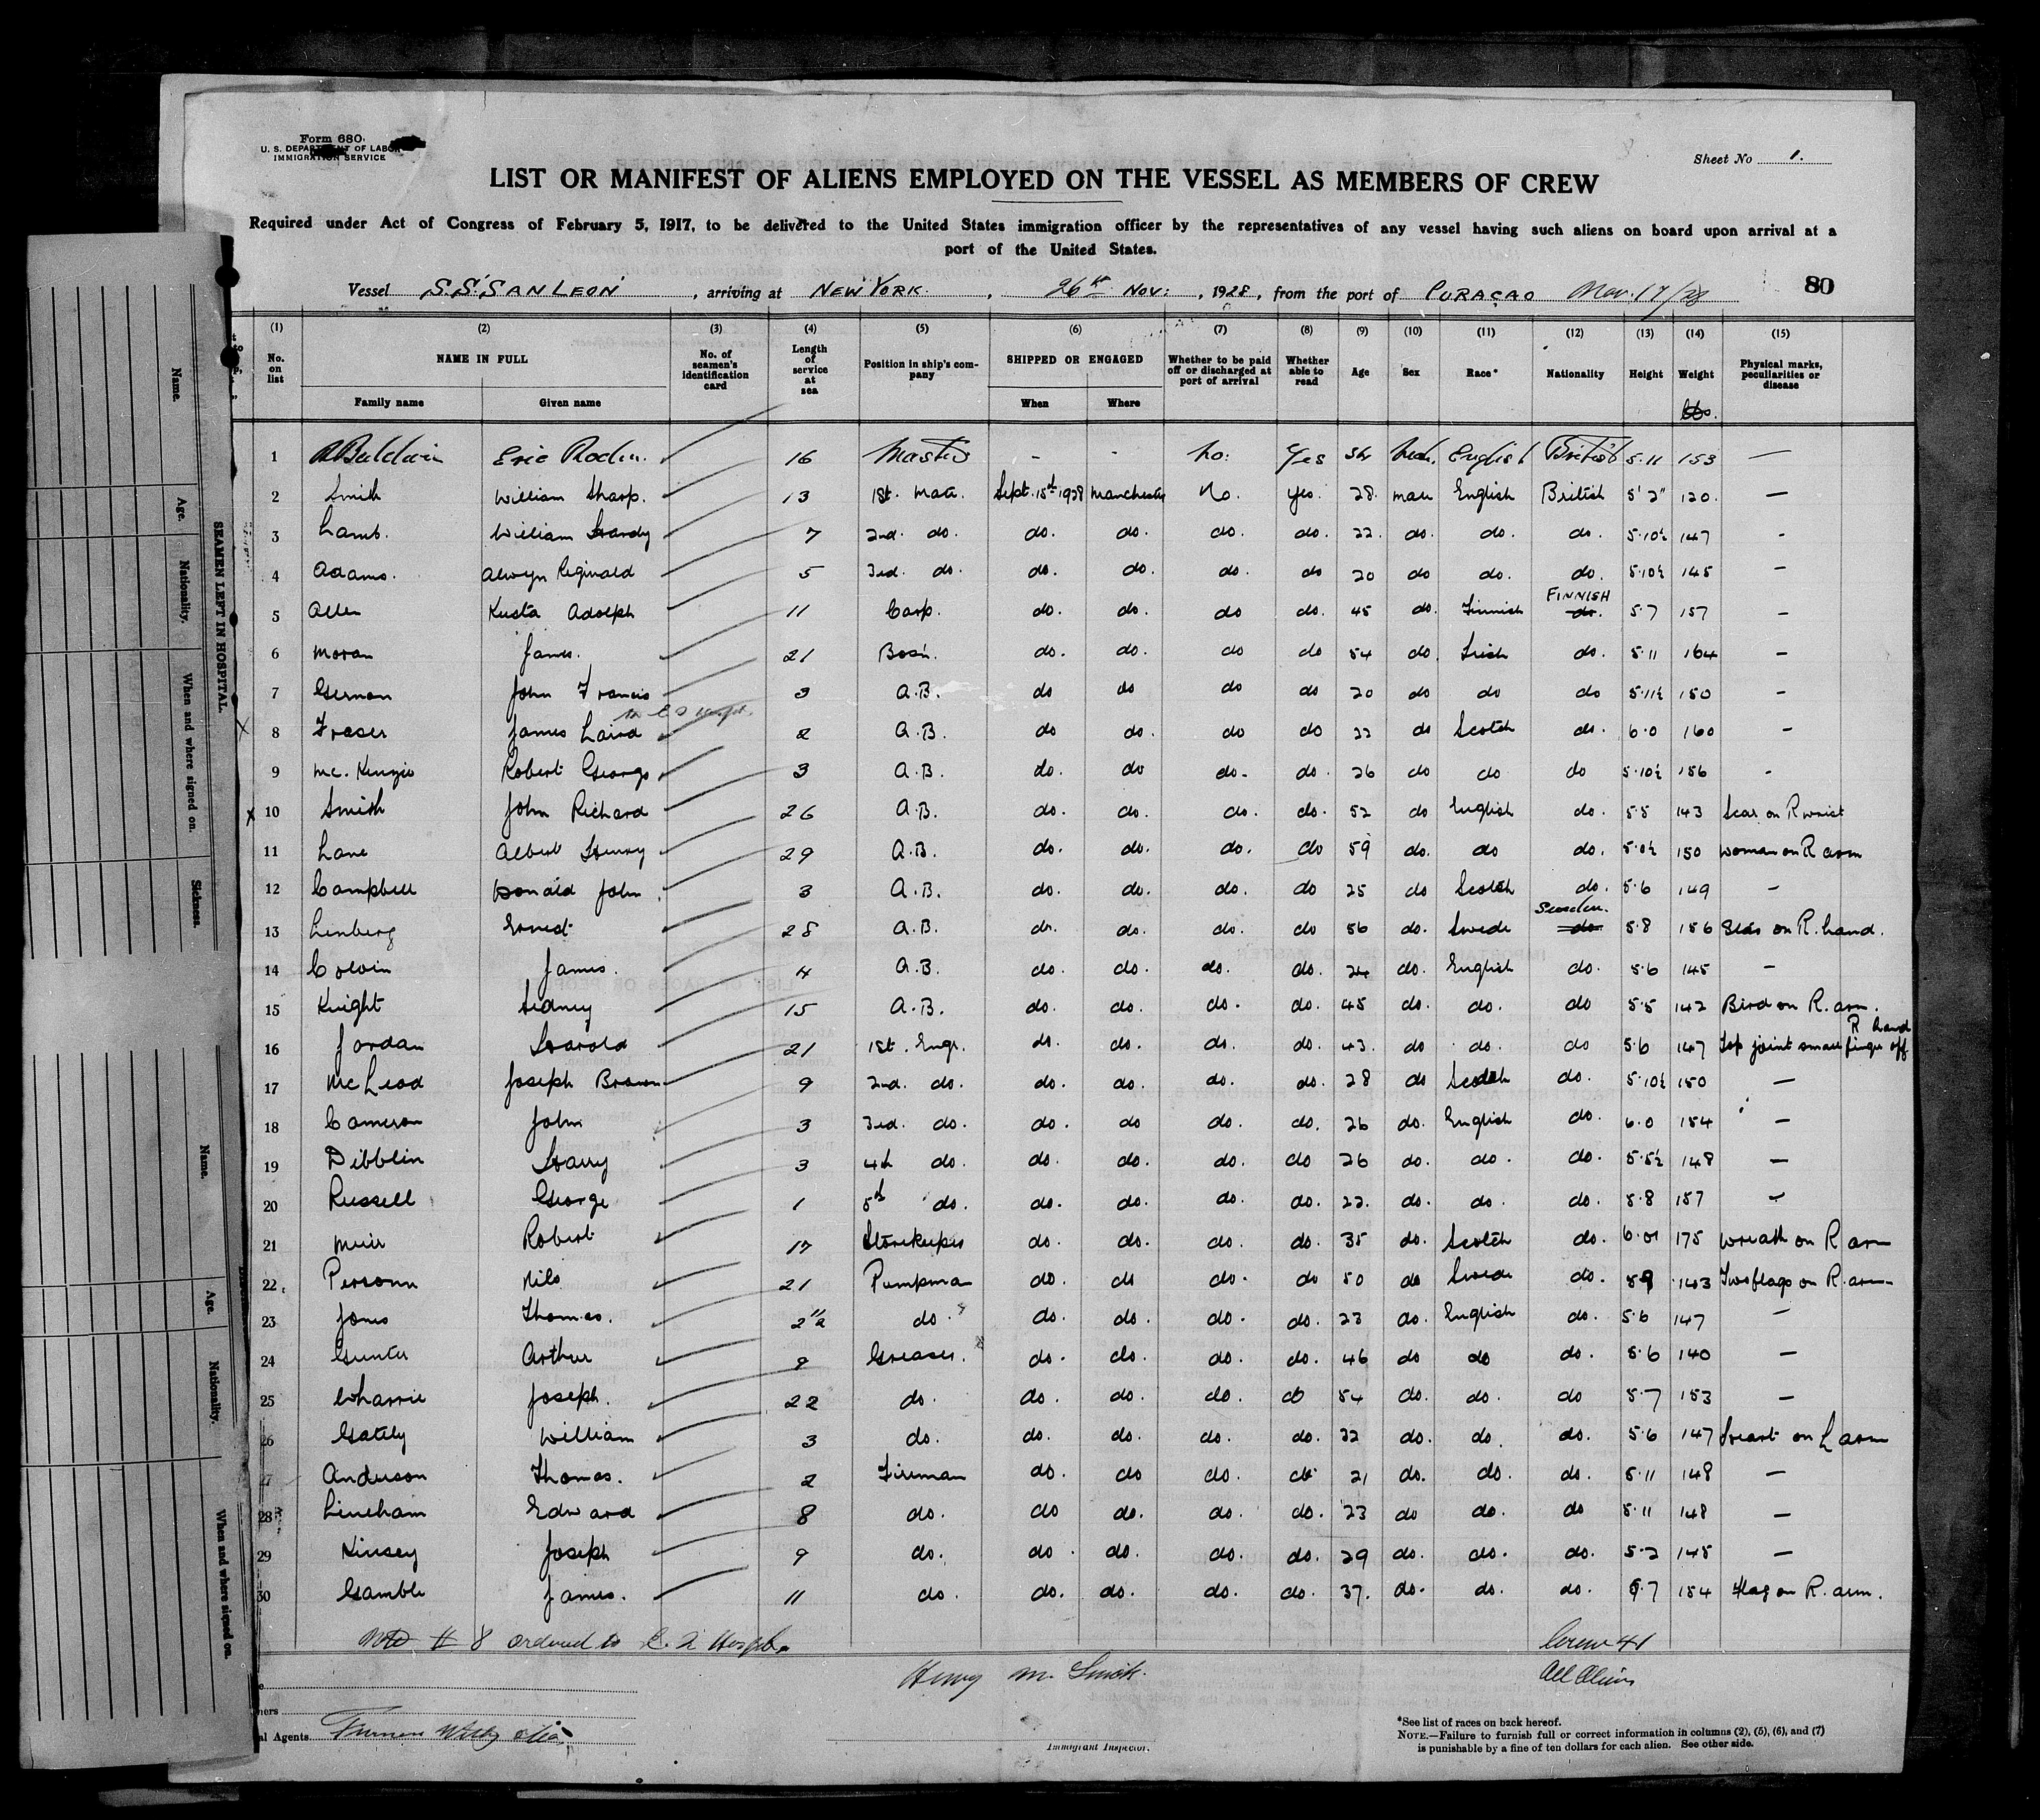 Form 680
U. S. DEPARTMENT OF LABOR
IMMIGRATION SERVICE
Sheet No 1.
LIST OR MANIFEST OF ALIENS EMPLOYED ON THE VESSEL AS MEMBERS OF CREW
Required under Act of Congress of February 5, 1917, to be delivered to the United States immigration officer by the representatives of any vessel having such aliens on board upon arrival at a
port of the United States.
Vessel S.S. "SAN LEON", arriving at NEW YORK, 26th Nov: , 1928, from the port of CURAÇAO Nov. 17/28 80
(1) (2) (3) (4) (5) (6) (7) (8) (9) (10) (11) (12) (13) (14) (15)
No. on list NAME IN FULL No. of seamen's identification card Length of service at sea Position in ship's company SHIPPED OR ENGAGED Whether to be paid off or discharged at port of arrival Whether able to read Age Sex Race* Nationality Height Weight Physical marks, peculiarities or disease
Family name Given name When Where lbs.
1 Baldwin Eric 16 Master - - No: Yes 34 English British 5.11 153 —
2 Smith William Sharp. 13 1st. Mate. Sept. 15th 1928 Manchester No. yes. 28. male English British 5' 2" 120. —
3 Lamb. William Hardy 7 2nd. do. do. do. do. do. 22. do. do. do. 5.10½ 147 -
4 Adams. Alwyn Reginald 5 3rd. do. do. do. do. do 20 do do. do. 5.10½ 145 —
FINNISH
5 Allen Kusta Adolph 11 Carp. do. do. do do. 45 do. Finnish do. 5.7 157 —
6 Moran James. 21 Bosn. do. do. do do 54 do. Irish do. 5.11 164 —
7 Gernon John Francis 3 A.B. do do do do 20 do do do 5.11½ 150 -
8 Fraser James Laird 2 A.B. do do. do do 22 do Scotch do. 6.0 160 —
9 Mc. Kenzie Robert George 3 A.B. do. do do. do. 26 do do do 5.10½ 156 -
10 Smith John Richard 26 A.B. do. do. do. do. 52 do English do. 5.5 143 Scar on R wrist
11 Lane Albert Henry 29 A.B. do. do. do. do 59 do. do do. 5.0½ 150 Woman on R arm
12 Campbell Donald John. 3 A.B. do. do. do. do 25 do Scotch do. 5.6 149 —
Sweden.
13 Linberg Ernest 28 A.B. do. do. do. do 56 do. Swede do 5.8 156 Scar on R. hand.
14 Colvin James. 4 A.B. do. do. do. do. 24 do. English do. 5.6 145 —
15 Knight Sidney 15 A.B. do. do. do. do. 45 do. do. do 5.5 142 Bird on R. arm.
R hand
16 Jordan Harold 21 1st. Engr. do. do. do. do. 43. do do. do 5.6 147 Top joint small finger off
17 McLeod Joseph Brown 9 2nd. do. do. do. do. do. 28 do Scotch do. 5.10½ 150 —
18 Cameron John 3 3rd. do. do. do do. do. 26 do. English do. 6.0 154 —
19 Dibblin Harry 3 4th do. do. do. do. do 26 do. do. do. 5.5½ 148 —
20 Russell George 1 5th do. do. do. do. do. 22. do. do. do. 5.8 157 —
21 Muir Robert 17 Storekeeper do. do. do. do. 35 do. Scotch do. 175 Wreath on R arm
22. Personn Nils 21 Pumpman do. do do. do 50 do Swede do. 5 9 143 Two flags on R. arm
23 Jones Thomas. do. do. do. do. do. 23 do. English do. 5.6 147 —
24 Gunter Arthur 9 Greaser. do. do. do. do. 46 do do do. 5.6 140 —
25 Wharrie Joseph. 22 do. do. do. do. do 54 do. do. do 5.7 153 —
26 Gately William 3 do. do. do. do. do. 22 do. do. do. 5.6 147 Heart on L arm
27 Anderson Thomas. 2 Fireman do. do do. do. 21 do. do. do. 5.11 148 —
28 Lineham Edward 8 do. do do. do. do. 23 do do. do 5.11 148 —
29 Kinsey Joseph 9 do. do. do. do. do. 29 do. do. do. 5.2 148 —
30 Gamble James. 11 do. do. do. do. do. 37. do. do. do. 5.7 154 Flag on R. arm.
Note # 8 ordered to Hospital
Crew 41
Henry M. Smith.
All Aliens
al Agents Furness Withy & Co.
Immigrant Inspector.
*See list of races on back hereof.
NOTE.—Failure to furnish full or correct information in columns (2), (5), (6), and (7)
is punishable by a fine of ten dollars for each alien. See other side.
SEAMEN LEFT IN HOSPITAL.
Name. Age. Nationality. When and where signed on. Sickness.
Name. Age. Nationality. When and where signed on.